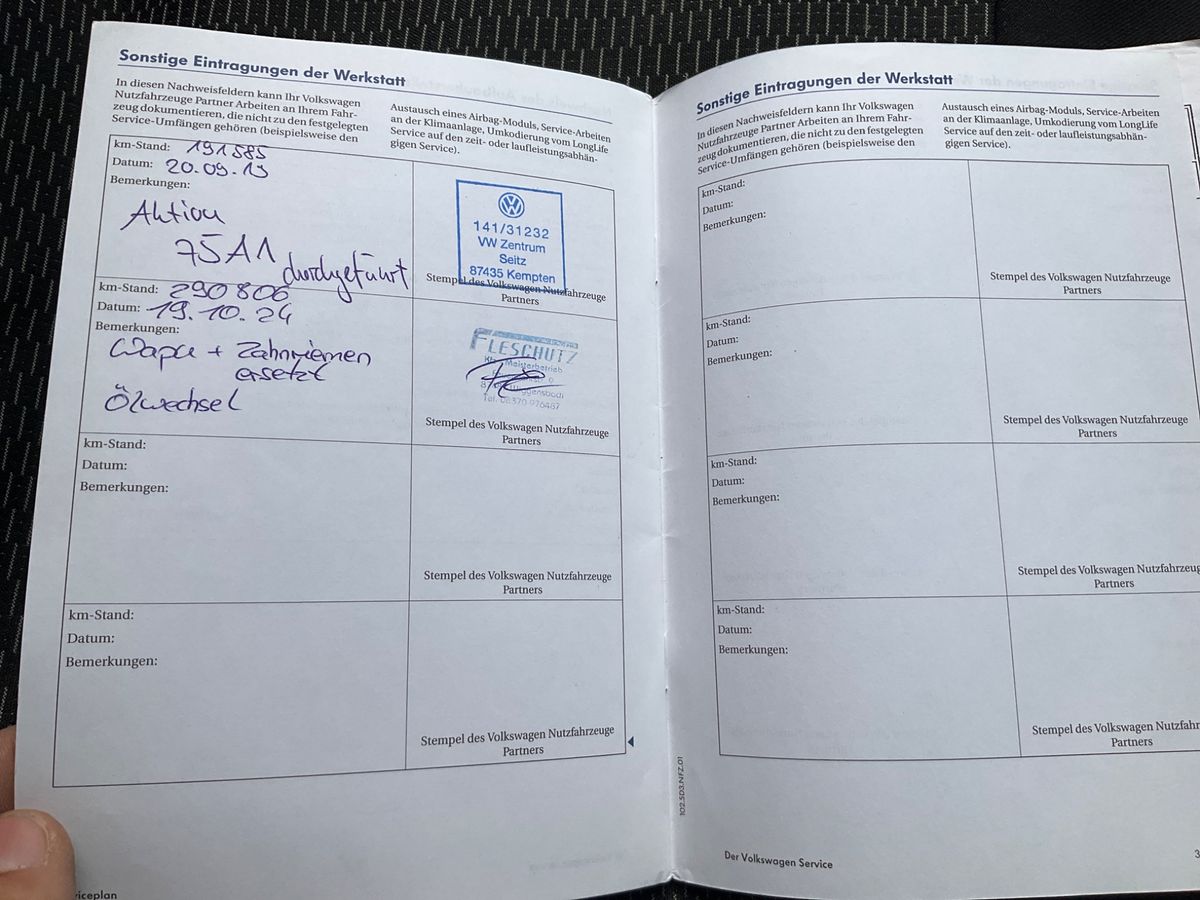 Sonstige Eintragungen der Werkstatt
In diesen Nachweisfeldern kann Ihr Volkswagen
Nutzfahrzeuge Partner Arbeiten an Ihrem Fahr-
zeug dokumentieren, die nicht zu den festgelegten
Service-Umfängen gehören (beispielsweise den
Austausch eines Airbag-Moduls, Service-Arbeiten
an der Klimaanlage, Umkodierung vom LongLife
Service auf den zeit- oder laufleistungsabhän-
gigen Service).
km-Stand: 191585
Datum: 20.09.19
Bemerkungen:
Aktion
75A1
durchgeführt
141/31232
VW Zentrum
Seitz
87435 Kempten
Stempel des Volkswagen Nutzfahrzeuge
Partners
km-Stand: 290806
Datum: 19.10.24
Bemerkungen:
Wapu + Zahnriemen
ersetzt
Ölwechsel
FLESCHUTZ
Kfz-Meisterbetrieb
Tel. 08370-976487
Stempel des Volkswagen Nutzfahrzeuge
Partners
km-Stand:
Datum:
Bemerkungen:
Stempel des Volkswagen Nutzfahrzeuge
Partners
km-Stand:
Datum:
Bemerkungen:
Stempel des Volkswagen Nutzfahrzeuge
Partners
iceplan
Sonstige Eintragungen der Werkstatt
In diesen Nachweisfeldern kann Ihr Volkswagen
Nutzfahrzeuge Partner Arbeiten an Ihrem Fahr-
zeug dokumentieren, die nicht zu den festgelegten
Service-Umfängen gehören (beispielsweise den
Austausch eines Airbag-Moduls, Service-Arbeiten
an der Klimaanlage, Umkodierung vom LongLife
Service auf den zeit- oder laufleistungsabhän-
gigen Service).
km-Stand:
Datum:
Bemerkungen:
Stempel des Volkswagen Nutzfahrzeuge
Partners
km-Stand:
Datum:
Bemerkungen:
Stempel des Volkswagen Nutzfahrzeuge
Partners
km-Stand:
Datum:
Bemerkungen:
Stempel des Volkswagen Nutzfahrzeug
Partners
km-Stand:
Datum:
Bemerkungen:
Stempel des Volkswagen Nutzfahr
Partners
102.5D3.NFZ.01
Der Volkswagen Service
3